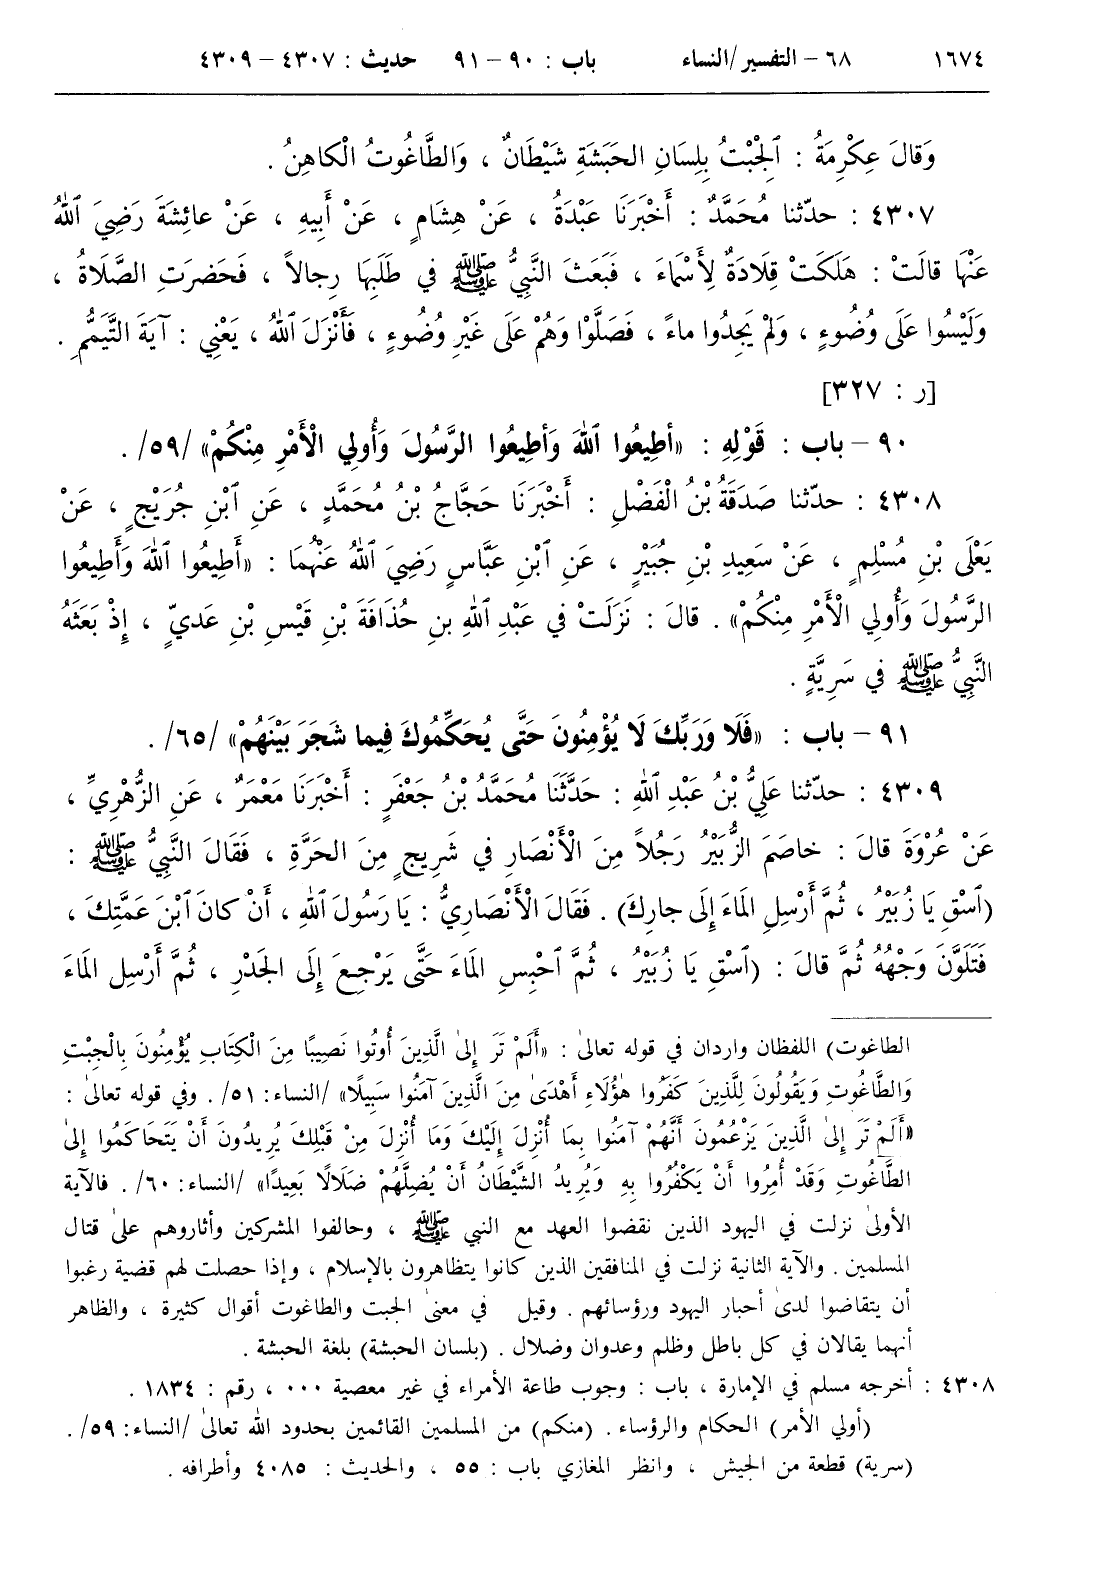 ١٦٧٤ ٦٨ – التفسير/النساء باب : ٩٠ – ٩١ حديث : ٤٣٠٧ – ٤٣٠٩
وَقالَ عِكْرِمَةُ : ٱلْجِبْتُ بِلِسَانِ الحَبَشَةِ شَيْطَانٌ ، وَالطَّاغُوتُ الْكاهِنُ .
٤٣٠٧ : حدّثنا مُحَمَّدٌ : أَخْبَرَنَا عَبْدَةُ ، عَنْ هِشَامٍ ، عَنْ أَبِيهِ ، عَنْ عائِشَةَ رَضِيَ ٱللهُ
عَنْهَا قالَتْ : هَلَكَتْ قِلَادَةٌ لِأَسْمَاءَ ، فَبَعَثَ النَّبِيُّ ﷺ في طَلَبِهَا رِجالاً ، فَحَضَرَتِ الصَّلَاةُ ،
وَلَيْسُوا عَلَى وُضُوءٍ ، وَلَمْ يَجِدُوا ماءً ، فَصَلَّوْا وَهُمْ عَلَى غَيْرِ وُضُوءٍ ، فَأَنْزَلَ ٱللهُ ، يَعْنِي : آيَةَ التَّيَمُّمِ .
[ر : ٣٢٧]
٩٠ – باب : قَوْلِهِ : «أطِيعُوا ٱللهَ وَأطِيعُوا الرَّسُولَ وَأُولِي الْأَمْرِ مِنْكُمْ» /٥٩/ .
٤٣٠٨ : حدّثنا صَدَقَةُ بْنُ الْفَضْلِ : أَخْبَرَنَا حَجَّاجُ بْنُ مُحَمَّدٍ ، عَنِ ٱبْنِ جُرَيْجٍ ، عَنْ
يَعْلَى بْنِ مُسْلِمٍ ، عَنْ سَعِيدِ بْنِ جُبَيْرٍ ، عَنِ ٱبْنِ عَبَّاسٍ رَضِيَ ٱللهُ عَنْهُمَا : «أَطِيعُوا ٱللهَ وَأَطِيعُوا
الرَّسُولَ وَأُولِي الْأَمْرِ مِنْكُمْ» . قالَ : نَزَلَتْ في عَبْدِ ٱللهِ بنِ حُذَافَةَ بْنِ قَيْسِ بْنِ عَدِيٍّ ، إِذْ بَعَثَهُ
النَّبِيُّ ﷺ في سَرِيَّةٍ .
٩١ – باب : «فَلَا وَرَبِّكَ لَا يُؤْمِنُونَ حَتَّى يُحَكِّمُوكَ فِيما شَجَرَ بَيْنَهُمْ» /٦٥/ .
٤٣٠٩ : حدّثنا عَلِيُّ بْنُ عَبْدِ ٱللهِ : حَدَّثَنَا مُحَمَّدُ بْنُ جَعْفَرٍ : أَخْبَرَنَا مَعْمَرٌ ، عَنِ الزُّهْرِيِّ ،
عَنْ عُرْوَةَ قالَ : خاصَمَ الزُّبَيْرُ رَجُلاً مِنَ الْأَنْصَارِ في شَرِيجٍ مِنَ الحَرَّةِ ، فَقَالَ النَّبِيُّ ﷺ :
(ٱسْقِ يَا زُبَيْرُ ، ثُمَّ أَرْسِلِ المَاءَ إِلَى جارِكَ) . فَقَالَ الْأَنْصَارِيُّ : يَا رَسُولَ ٱللهِ ، أَنْ كانَ ٱبْنَ عَمَّتِكَ ،
فَتَلَوَّنَ وَجْهُهُ ثُمَّ قالَ : (ٱسْقِ يَا زُبَيْرُ ، ثُمَّ ٱحْبِسِ المَاءَ حَتَّى يَرْجِعَ إِلَى الجَدْرِ ، ثُمَّ أَرْسِلِ المَاءَ
الطاغوت) اللفظان واردان في قوله تعالىٰ : «أَلَمْ تَرَ إِلىٰ الَّذِينَ أُوتُوا نَصِيبًا مِنَ الْكِتَابِ يُؤْمِنُونَ بِالْجِبْتِ
وَالطَّاغُوتِ وَيَقُولُونَ لِلَّذِينَ كَفَرُوا هٰؤُلَاءِ أَهْدَىٰ مِنَ الَّذِينَ آمَنُوا سَبِيلًا» /النساء: ٥١/ . وفي قوله تعالىٰ :
«أَلَمْ تَرَ إِلىٰ الَّذِينَ يَزْعُمُونَ أَنَّهُمْ آمَنُوا بِمَا أُنْزِلَ إِلَيْكَ وَمَا أُنْزِلَ مِنْ قَبْلِكَ يُرِيدُونَ أَنْ يَتَحَاكَمُوا إِلىٰ
الطَّاغُوتِ وَقَدْ أُمِرُوا أَنْ يَكْفُرُوا بِهِ وَيُرِيدُ الشَّيْطَانُ أَنْ يُضِلَّهُمْ ضَلَالًا بَعِيدًا» /النساء: ٦٠/ . فالآية
الأولىٰ نزلت في اليهود الذين نقضوا العهد مع النبي ﷺ ، وحالفوا المشركين وأثاروهم علىٰ قتال
المسلمين . والآية الثانية نزلت في المنافقين الذين كانوا يتظاهرون بالإسلام ، وإذا حصلت لهم قضية رغبوا
أن يتقاضوا لدىٰ أحبار اليهود ورؤسائهم . وقيل في معنىٰ الجبت والطاغوت أقوال كثيرة ، والظاهر
أنهما يقالان في كل باطل وظلم وعدوان وضلال . (بلسان الحبشة) بلغة الحبشة .
٤٣٠٨ : أخرجه مسلم في الإمارة ، باب : وجوب طاعة الأمراء في غير معصية ... ، رقم : ١٨٣٤ .
(أولي الأمر) الحكام والرؤساء . (منكم) من المسلمين القائمين بحدود الله تعالىٰ /النساء: ٥٩/ .
(سرية) قطعة من الجيش ، وانظر المغازي باب : ٥٥ ، والحديث : ٤٠٨٥ وأطرافه .